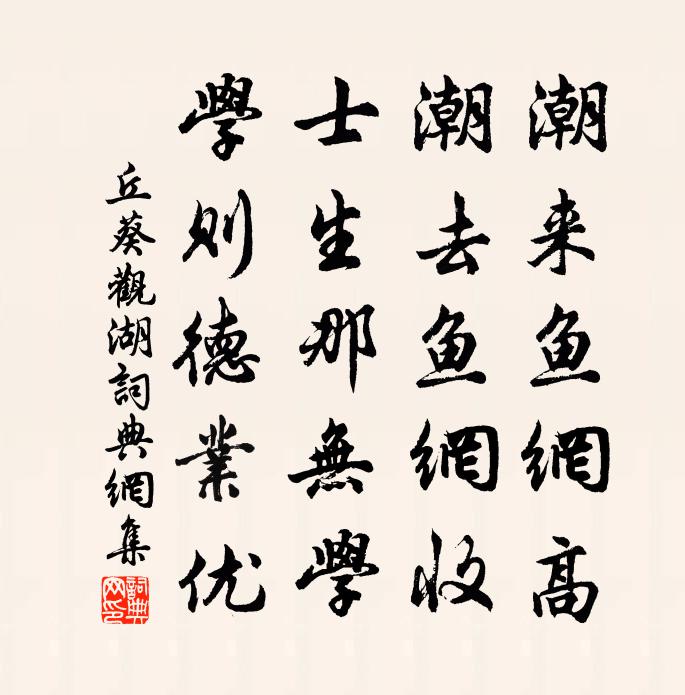 潮来鱼網高
潮去鱼網收
士生那無學
學则德業优
丘葵觀湖詞典網集
詞典網印